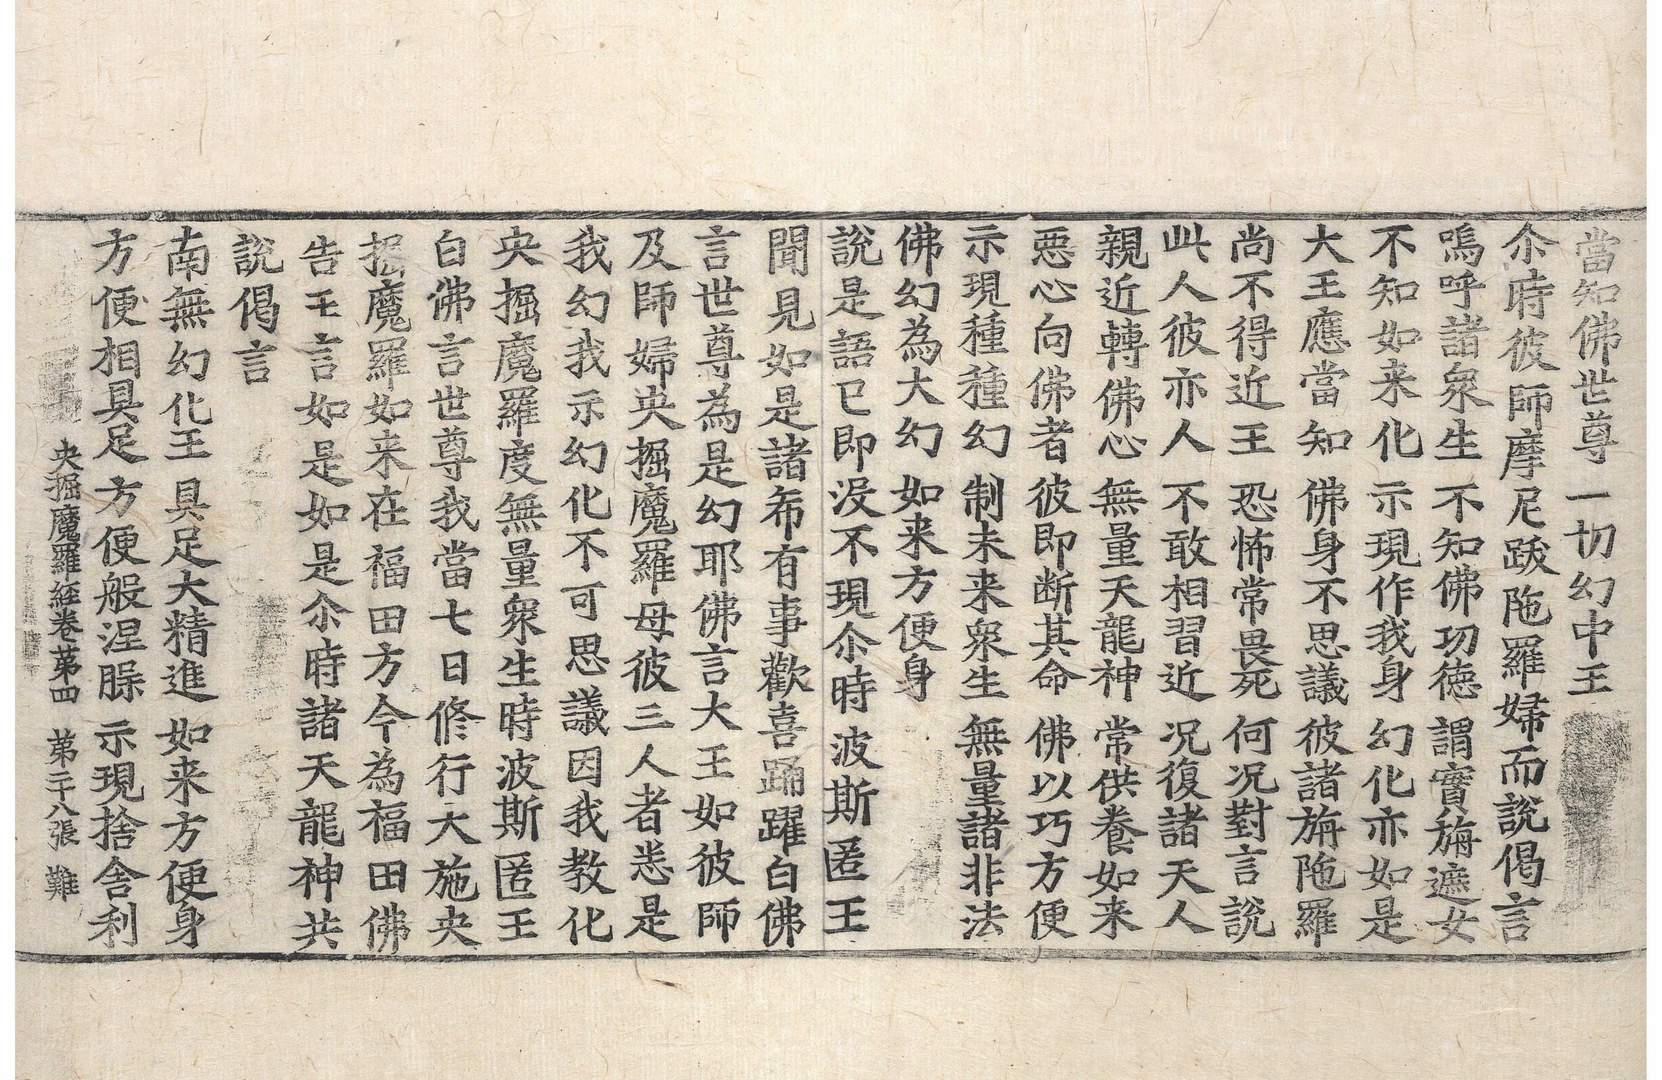 當知佛世尊 一切幻中王
尒時彼師摩尼跋陁羅婦而說偈言
嗚呼諸衆生 不知佛功徳 謂實旃遮女
不知如来化 示現作我身 幻化亦如是
大王應當知 佛身不思議 彼諸旃陁羅
尚不得近王 恐怖常畏死 何况對言說
此人彼亦人 不敢相習近 况復諸天人
親近轉佛心 無量天龍神 常供養如来
惡心向佛者 彼即断其命 佛以巧方便
示現種種幻 制未来衆生 無量諸非法
佛幻為大幻 如来方便身
說是語已即没不現尒時波斯匿王
聞見如是諸希有事歡喜踊躍白佛
言世尊為是幻耶佛言大王如彼師
及師婦央掘魔羅母彼三人者悉是
我幻我示幻化不可思議因我教化
央掘魔羅度無量衆生時波斯匿王
白佛言世尊我當七日修行大施央
掘魔羅如来在福田方今為福田佛
告王言如是如是尒時諸天龍神共
說偈言
南無幻化王 具足大精進 如来方便身
方便相具足 方便般涅槃 示現捨舎利
央掘魔羅経卷苐四 苐二十八張 難